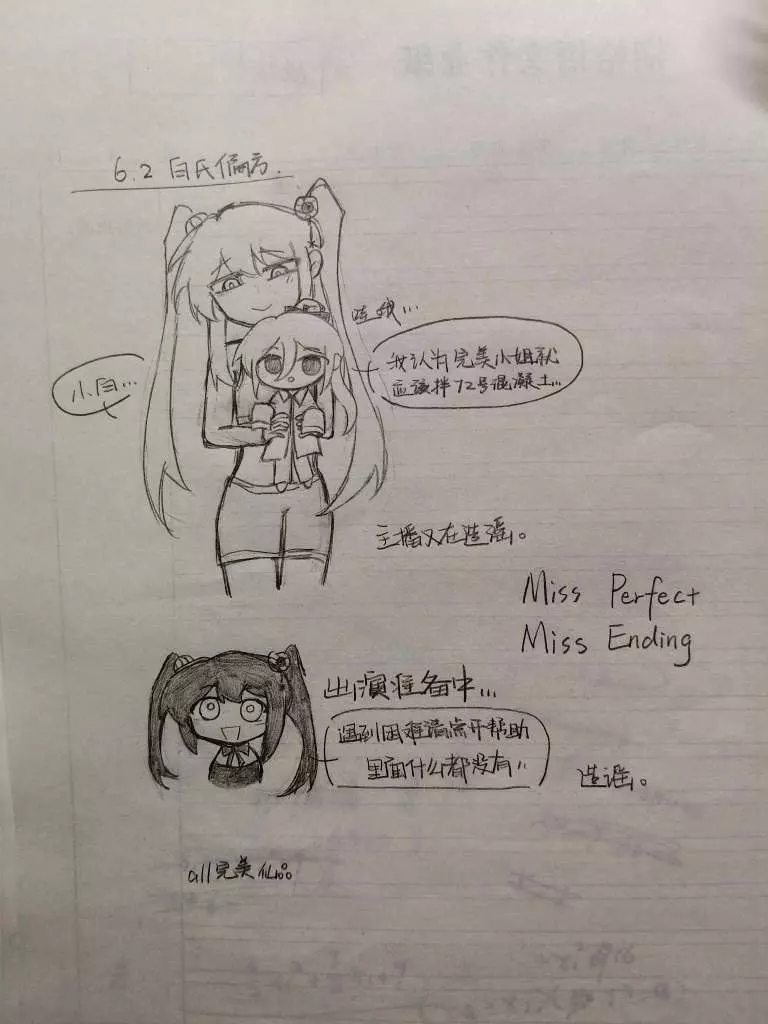 6.2 白氏偏方.
哇哦…
小白…
我认为完美小姐就
应该拌72号混凝土…
主播又在造谣。
Miss Perfect
Miss Ending
出演准备中…
遇到困难请点开帮助
里面什么都没有!!
造谣。
all完美仙品